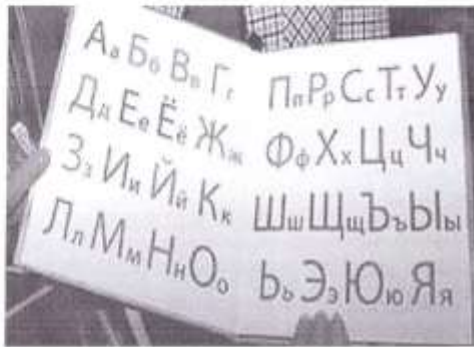 Аа Бб Вв Гг
Дд Ее Ёё Жж
Зз Ии Йй Кк
Лл Мм Нн Оо
Пп Рр Сс Тт Уу
Фф Хх Цц Чч
Шш Щщ Ъъ Ыы
Ьь Ээ Юю Яя